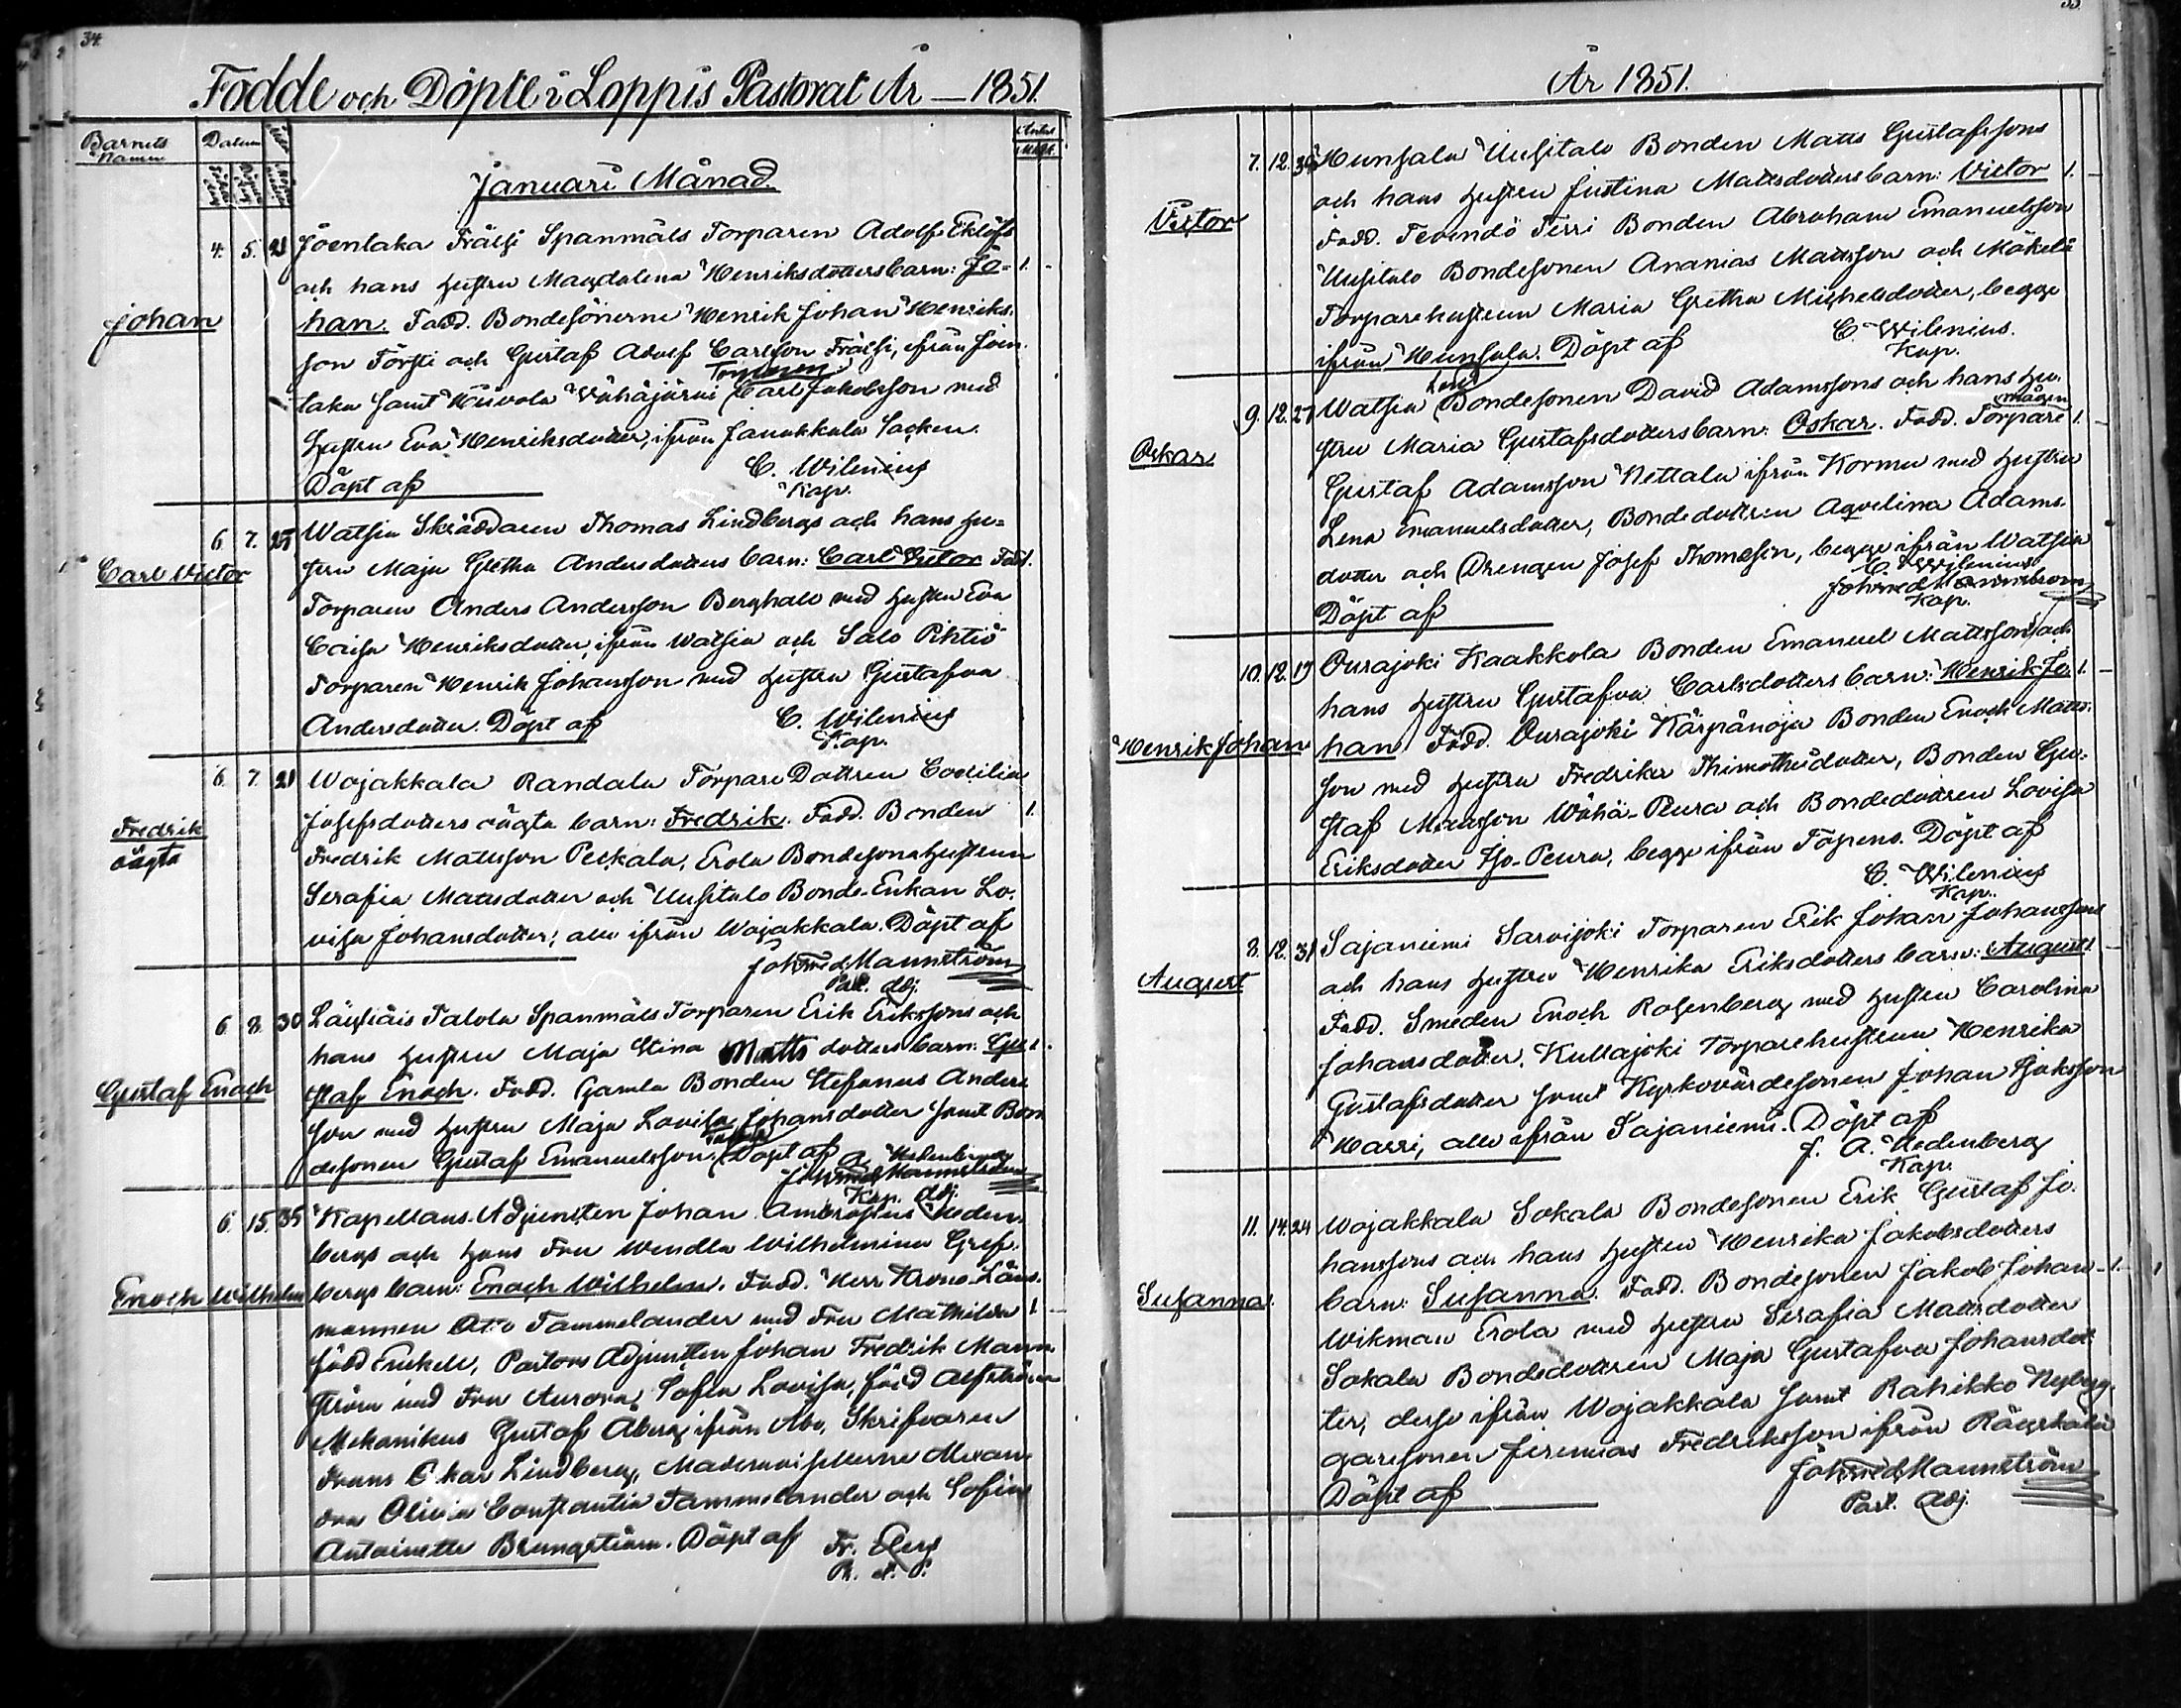 34.
Födde och Döpte i Loppis Pastorat År — 1851.
Barnets Namn
Datum
Januari Månad.
Johan
4. 5. 23 Joentaka Frälsi Spanmåls Torparen Adolf Eklöfs
och hans hustru Magdalena Henriksdotters barn: Jo= 1.
han. Fadd. Bondesönerne Henrik Johan Henriks-
son Törsti och Gustaf Adolf Carlsson Frälsi, ifrån Joen-
taka samt Torparen Carl Jakobsson med
hustru Eva Henriksdotter, ifrån Janakkala Socken.
Döpt af C. Wilenius
Kap.
Carl Victor
6. 7. 27 Watsia Skräddaren Thomas Lindbergs och hans hu=
stru Maja Gretha Andersdotters barn: Carl Victor Fadd.
Torparen Anders Andersson Berghall med hustru Eva
Caisa Henriksdotter, ifrån Watsia och Salo Pihtiö
Torparen Henrik Johansson med hustru Gustafva
Andersdotter. Döpt af C. Wilenius
Kap.
Fredrik
oägta
6. 7. 21 Wojakkala Randala Torpare Dottren Coecilia
Josefsdotters oägta barn: Fredrik. Fadd. Bonden 1.
Fredrik Mattsson Peckala, Erola Bondesonahustrun
Serafia Mattsdotter och Uusitalo Bonde-Enkan Lo-
visa Johansdotter; alle ifrån Wojakkala. Döpt af
Joh Fred Mannström
Past. Adj.
Gustaf Enoch
6. 8. 30 Läyliäis Talola Spanmåls Torparen Erik Erikssons och
hans hustru Maja Stina Matts dotters barn: Gu- 1.
staf Enoch. Fadd. Gamla Bonden Stefanus Anders-
son med hustru Maja Lovisa Johansdotter samt Bon-
desonen Gustaf Emanuelsson Döpt af Hedenberg
Joh Fred Mannström
Kap. Adj.
Enoch Wilhelm
6. 15. 35 Kapellans-Adjuncten Johan Ambrosius Heden-
bergs och hans Fru Wendla Wilhelmina Gref-
bergs barn: Enoch Wilhelm. Fadd. Herr Krono-Läns-
mannen Otto Tammelander med Fru Mathilda 1.
född Enckell, Pastors Adjuncten Johan Fredrik Mann-
ström med Fru Aurora Sofia Lovisa, född Alfström
Mekanikus Gustaf Åberg ifrån Åbo, Skrifvaren
Frans Oskar Lindberg, Mademoisellerne Alexan-
dra Olivia Constantia Tammelander och Sofia
Antoinette Döpt af Fr.
År 1851.
Victor
7. 12. 39 Hunsala Uusitalo Bonden Matts Gustafssons
och hans hustru Justina Mattsdotters barn: Victor 1.
Fadd. Tevendö Terri Bonden Abraham Emanuelsson
Uusitalo Bondesonen Ananias Mattsson och Mäkelä
Torparehustrun Maria Gretha Michelsdotter, begge
ifrån Hunsala. Döpt af C. Wilenius.
Kap.
Oskar
9. 12. 27 Watsia Bondesonen David Adamssons och hans hu-
stru Maria Gustafsdotters barn: Oskar. Fadd. Torpare mågen 1.
Gustaf Adamsson Nettala ifrån Kormu med hustru
Lena Emanuelsdotter, Bondedottren Aqvelina Adams-
dotter och Drengen Josef Thomasson, begge ifrån Watsia
C. Wilenius
Joh Fred Mannström
Döpt af Kap.
Henrik Johan
10. 12. 19 Ourajoki Kaakkola Bonden Emanuel Mattssons och
hans hustru Gustafva Carlsdotters barn: Henrik Jo- 1.
han Fadd. Ourajoki Kärpänoja Bonden Enoch Matts-
son med hustru Fredrika Thimotheidotter, Bonden Gu=
staf Mattsson Wähä-Peura och Bondedottren Lovisa
Eriksdotter Iso-Peura, begge ifrån Topeno. Döpt af
C. Wilenius
Kap.
August
8. 12. 31 Sajaniemi Sarvijoki Torparen Erik Johan Johanssons
och hans hustru Henrika Eriksdotters barn: August 1.
Fadd. Smeden Enoch Rosenberg med hustru Carolina
Johansdotter, Kullajoki Torparehustrun Henrika
Gustafsdotter samt Kyrkovärdesonen Johan Isaksson
Harri, alle ifrån Sajaniemi. Döpt af
J. A. Hedenberg
Kap.
Susanna
11. 14. 24 Wojakkala Sokala Bondesonen Erik Gustaf Jo-
hanssons och hans hustru Henrika Jakobsdotters
barn: Susanna. Fadd. Bondesonen Jakob Johan - 1.
Wikman Erola med hustru Serafia Mattsdotter
Sokala Bondedottren Maja Gustafva Johansdot-
ter, desse ifrån Wojakkala samt Rahikko Nybyg-
garesonen Jeremias Fredriksson ifrån Räyskälä
Döpt af Joh Fred Mannström
Past. Adj.